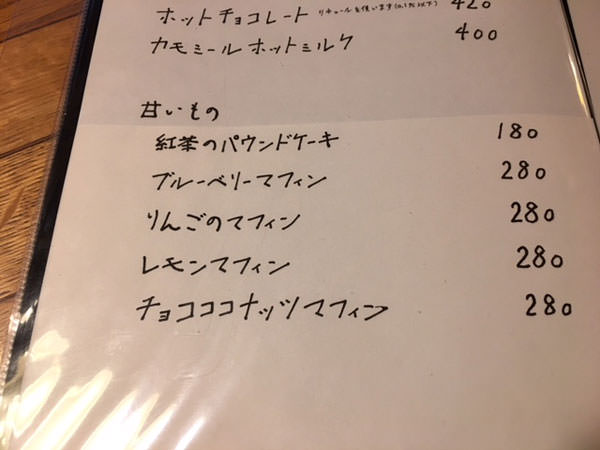 ホットチョコレート リキュールを使います(0.1%以下) 420
カモミールホットミルク 400
甘いもの
紅茶のパウンドケーキ 180
ブルーベリーマフィン 280
りんごのマフィン 280
レモンマフィン 280
チョコココナッツマフィン 280